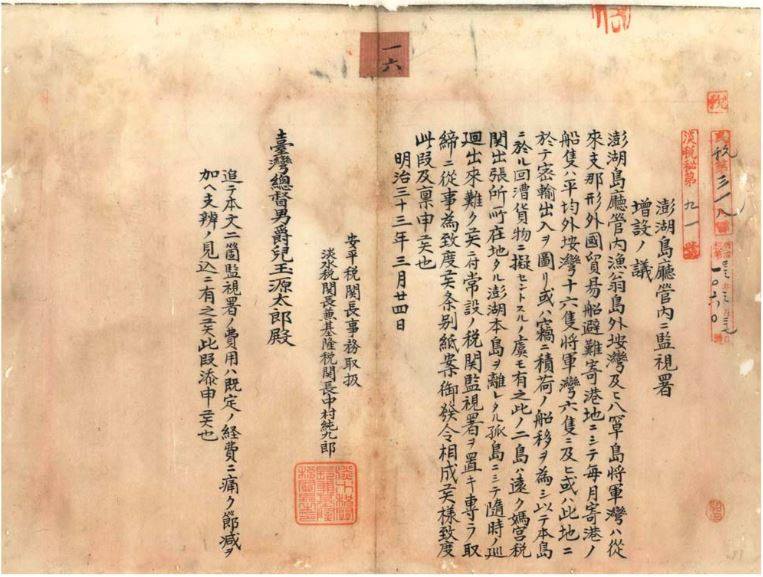 一六
澎湖島廳管内ニ監視署
増設ノ議
澎湖島廳管内漁翁島外垵灣及ヒ八罩島將軍灣ハ從
來支那形外國貿易船避難寄港地ニシテ毎月寄港ノ
船隻ハ平均外垵灣十六隻將軍灣六隻ニ及ヒ或ハ此地ニ
於テ密輸出入ヲ圖リ或ハ竊ニ積荷ノ船移ヲ為シ以テ本島
ニ於ル回漕貨物ニ擬セントスルノ虞モ有之此ノ二島ハ遠ク媽宮税
関出張所所在地タル澎湖本島ヲ離レタル孤島ニシテ隨時ノ巡
廻出來難ク候ニ付常設ノ税関監視署ヲ置キ専ラ取
締ニ從事為致度候条別紙案御發令相成候様致度
此段及稟申候也
明治三十三年三月廿四日
安平税関長事務取扱
淡水税関長兼基隆税関長中村純九郎
臺灣總督男爵兒玉源太郎殿
追テ本文二箇監視署ノ費用ハ既定ノ経費ニ痛ク節减ヲ
加ヘ支辨ノ見込ニ有之候此段添申候也